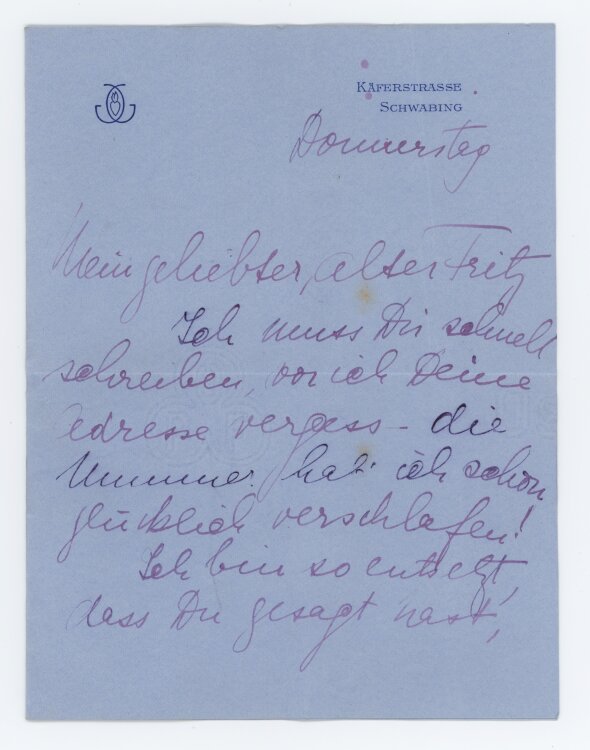 KÄFERSTRASSE
SCHWABING
Donnerstag
Mein geliebter, alter Fritz
Ich muss Dir schnell
schreiben, vor ich Deine
Adresse vergess - die
Nummer hab' ich schon
glücklich verschlafen!
Ich bin so entsetzt,
dass Du gesagt hast,